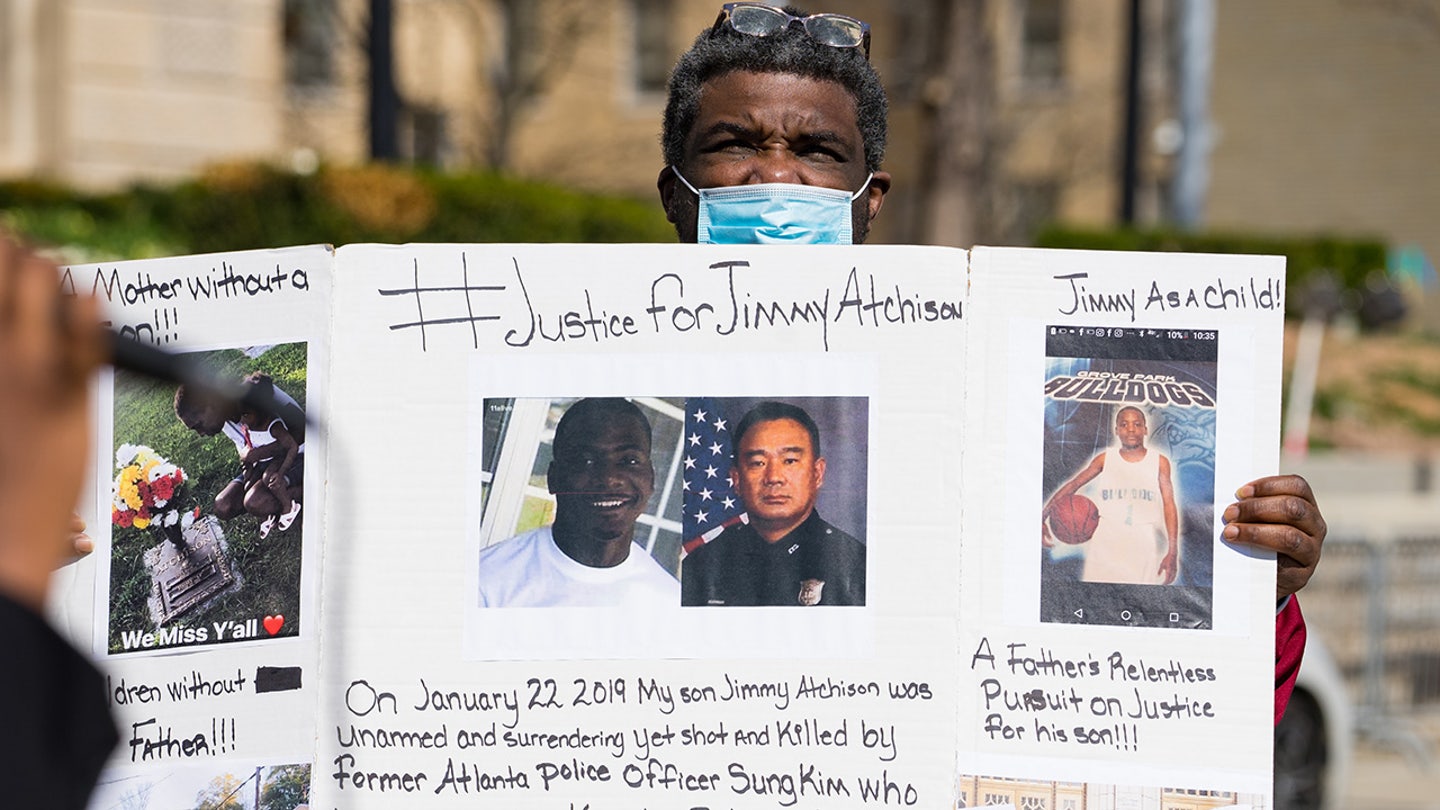 A Mother without a
Son!!!
We Miss Y'all
ldren without
Father!!!
#Justice for Jimmy Atchison
11alive
On January 22 2019 My son Jimmy Atchison was
unarmed and surrendering yet shot And Killed by
Former Atlanta Police Officer Sung Kim who
Jimmy As A Child!
10% 10:35
GROVE PARK
BULLDOGS
BULLDOGS
1
A Father's Relentless
Pursuit on Justice
for his son!!!